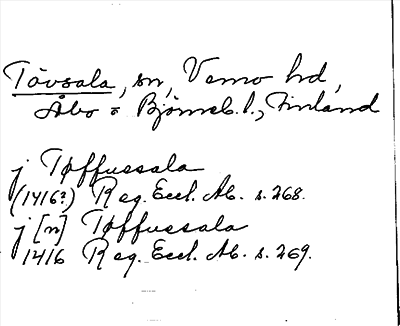 Tövsala, sn, Vemo hd,
Åbo o Björneb. l., Finland
j Tøffussala
(1416?) Reg. Eccl. Ab. s. 268.
j [n] Tøffussala
1416 Reg. Eccl. Ab. s. 269.